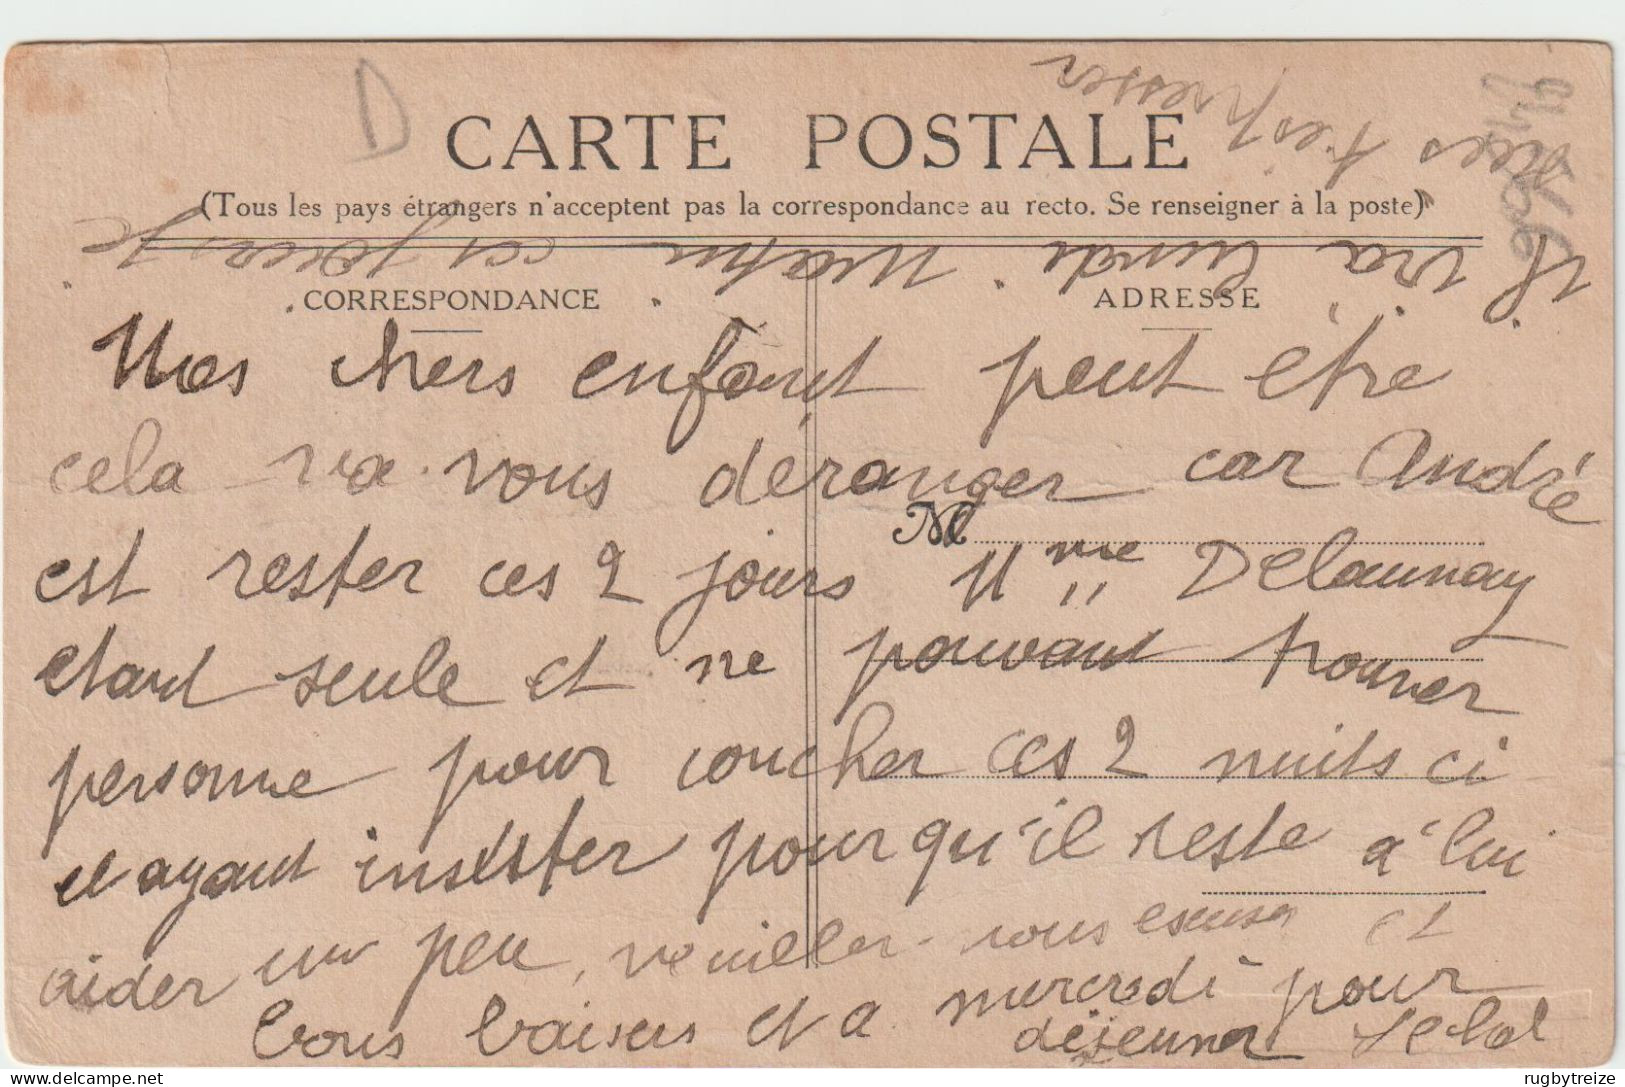 D
CARTE POSTALE
(Tous les pays étrangers n'acceptent pas la correspondance au recto. Se renseigner à la poste)
CORRESPONDANCE
ADRESSE
Mes chers enfant peut être
cela va vous déranger car André
est rester ces 2 jours Mme Delaunay
M
etant seule et ne pouvant trouver
personne pour coucher ces 2 nuits ci
el ayant insister pour qu'il reste a lui
aider un peu, veuiller nous escuser et
bons baisers et a mercredi pour
déjeuner
il ira lundi matin
suis très presser
rugbytreize